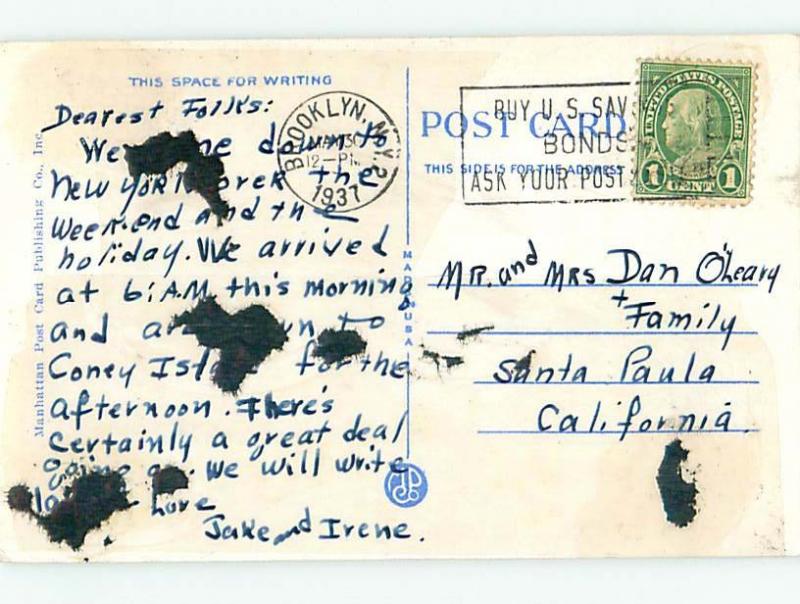 THIS SPACE FOR WRITING
Dearest Folks:
We down to
New York over the
weekend and the
holiday. We arrived
at 6: A.M. this morning
and to
Coney for the
afternoon. There's
certainly a great deal
going We will write
Love
Jake and Irene.
Manhattan Post Card Publishing Co., Inc.
BROOKLYN, N.Y. 2
MAY 30
12-PM
1937
BUY U.S. SAV
BONDS
ASK YOUR POST
UNITED STATES POSTAGE
1 CENT 1
POST CARD
THIS SIDE IS FOR THE ADDRESS
MADE IN U.S.A.
Mr. and Mrs Dan O'Leary
+ Family
Santa Paula
California.